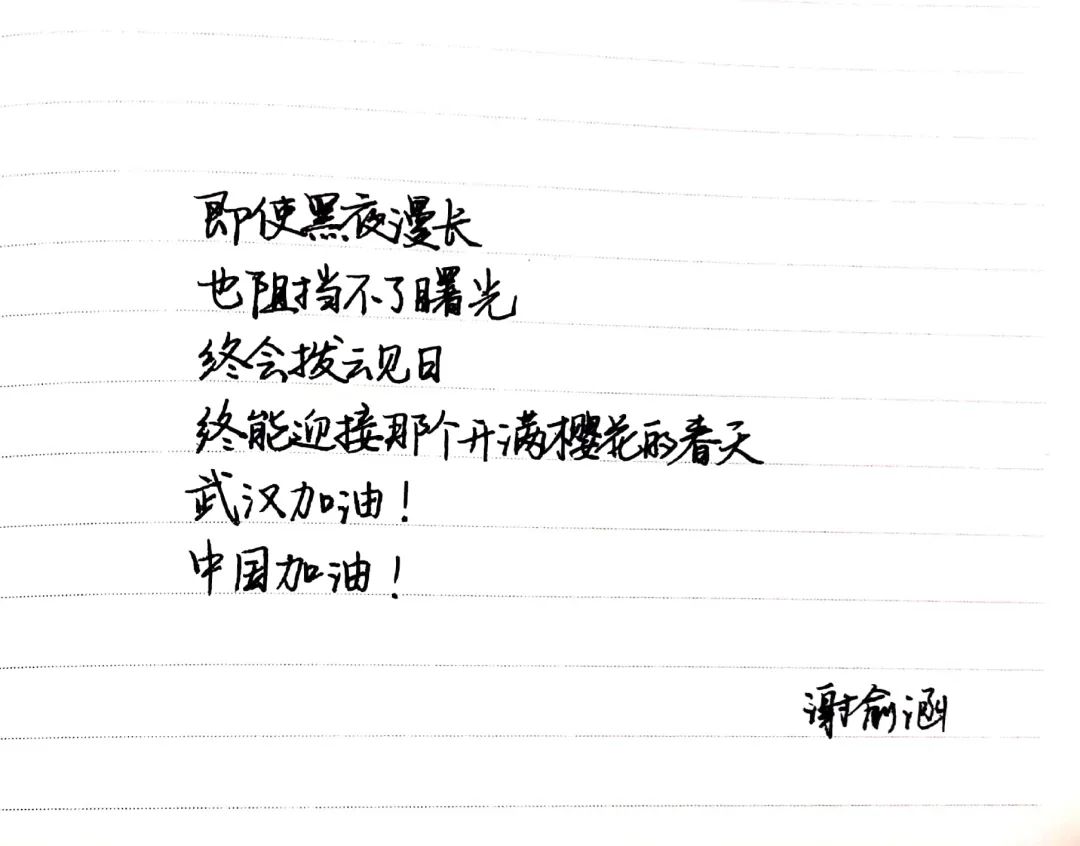 即使黑夜漫长
也阻挡不了曙光
终会拨云见日
终能迎接那个开满樱花的春天
武汉加油！
中国加油！
谢俞涵